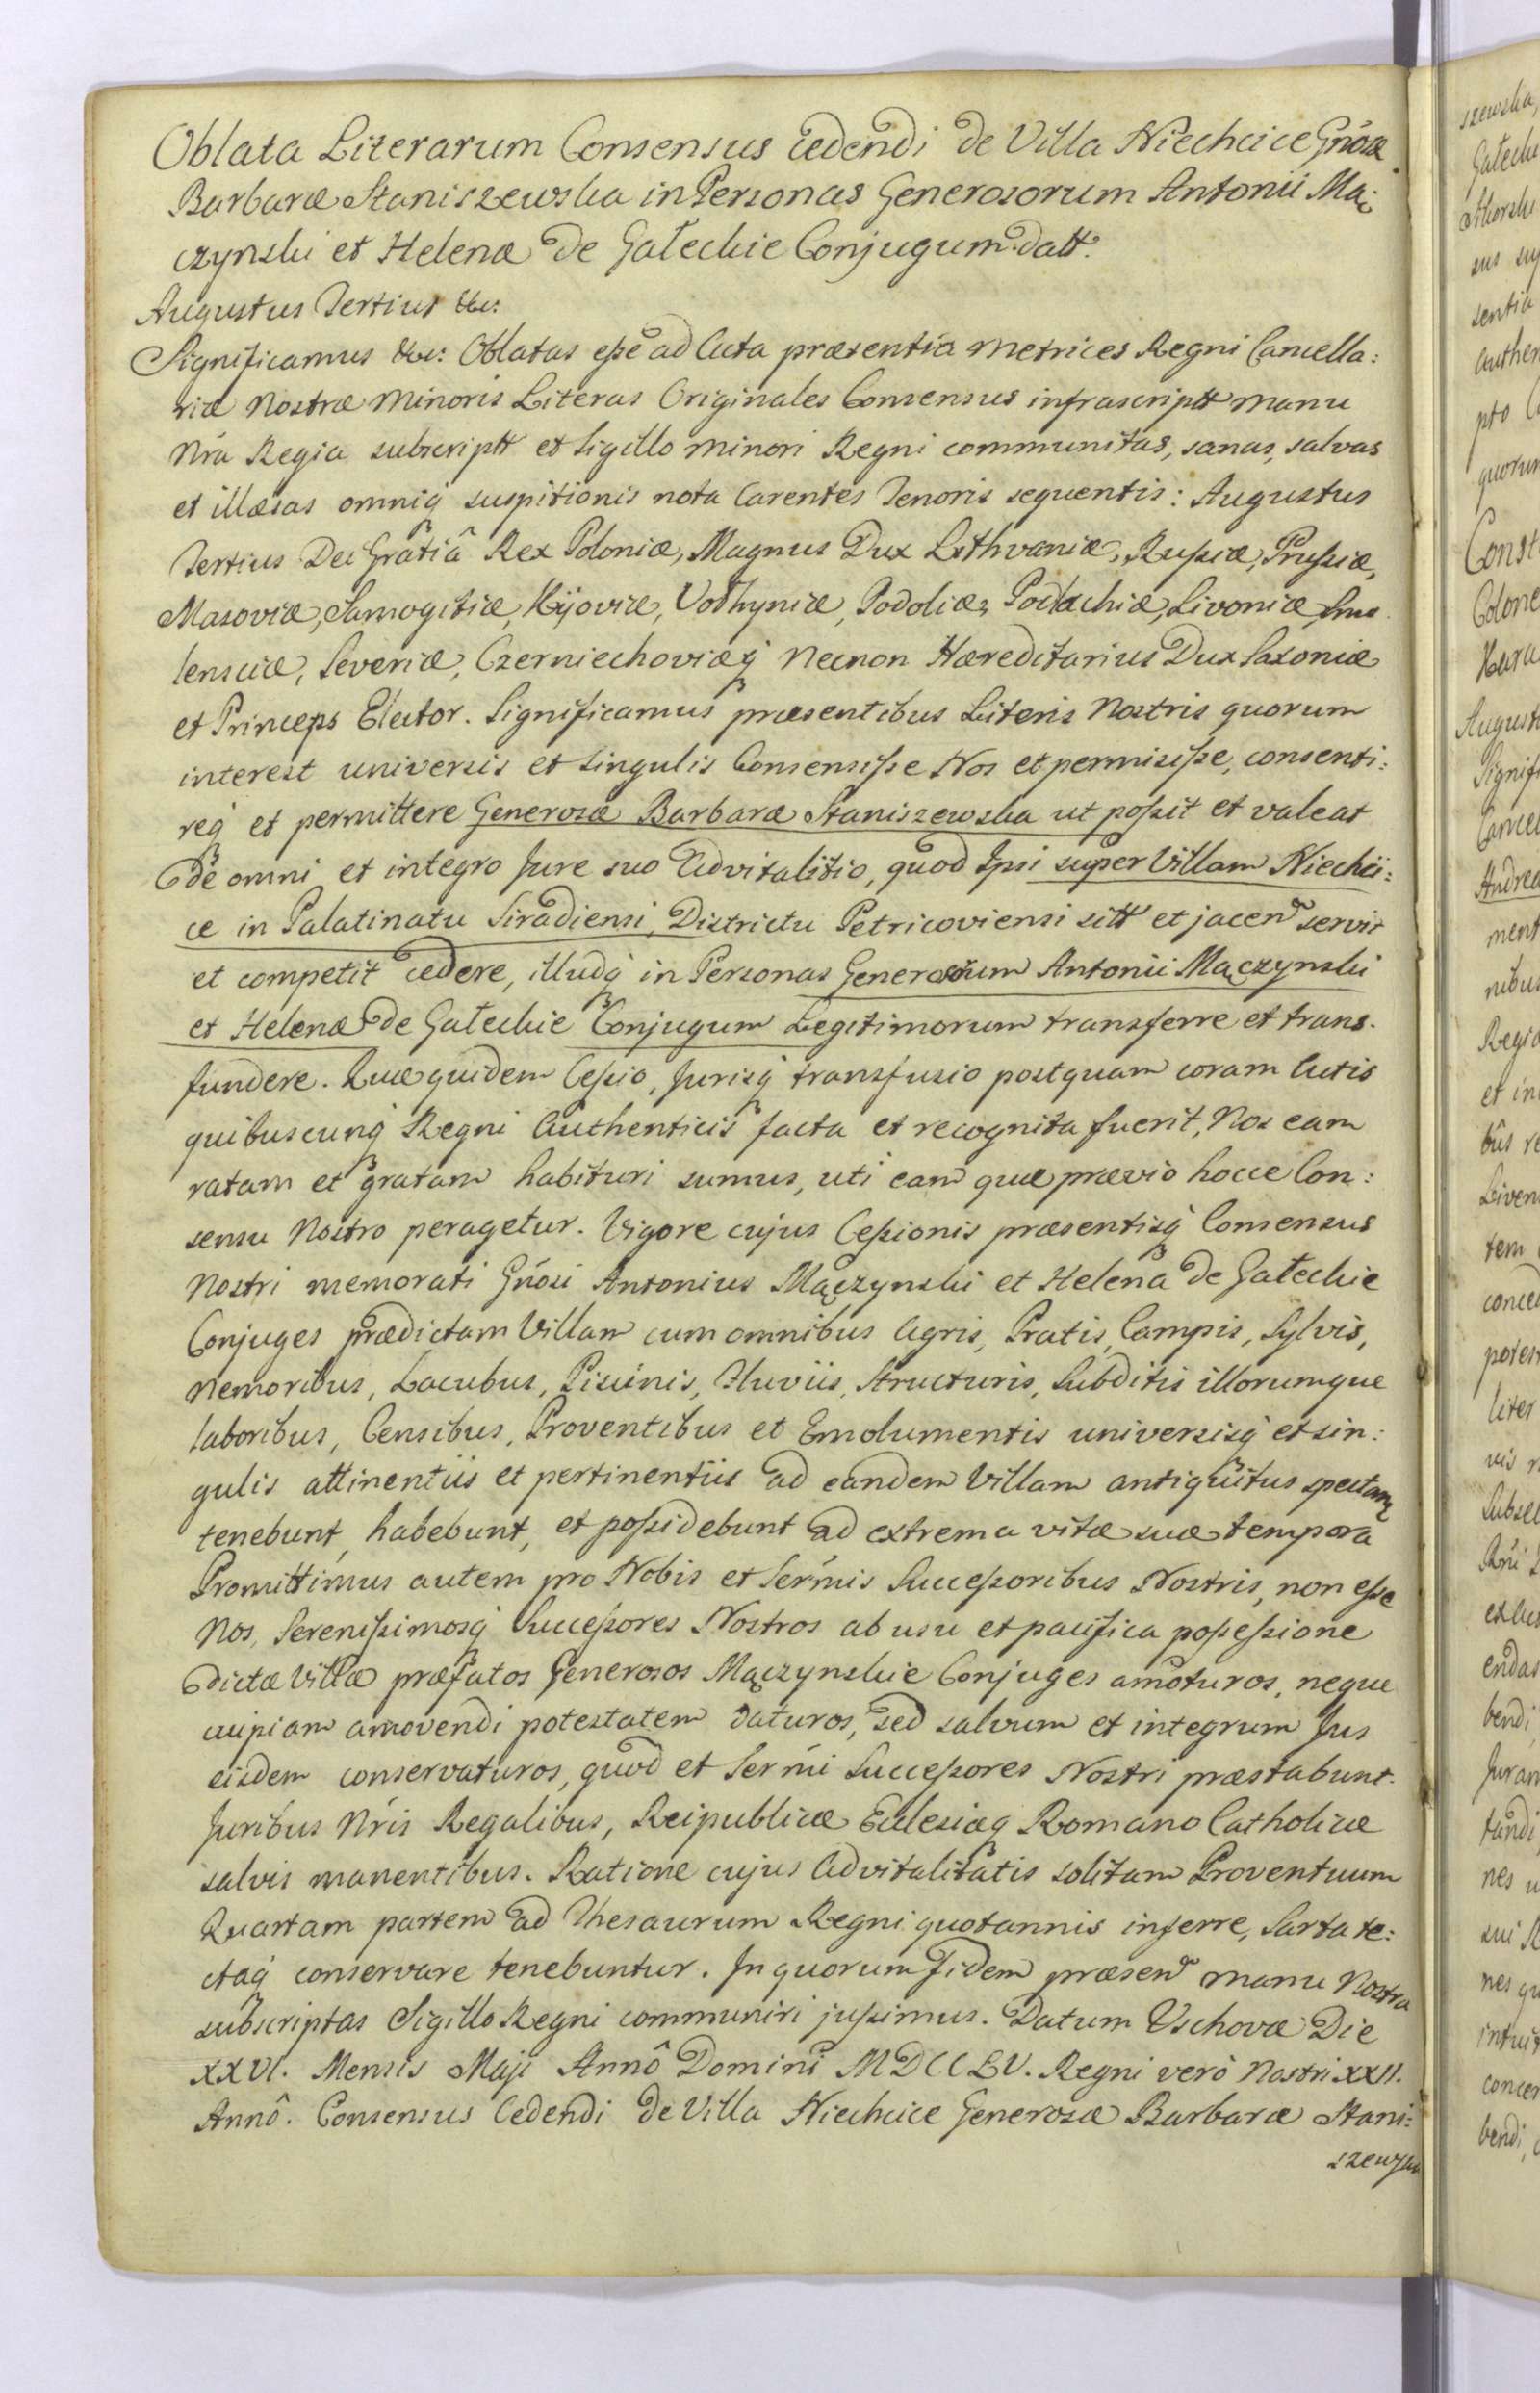 Oblata Literarum Consensus cedendi de Villa Niechcice Gñosæ
Barbaræ Staniszewska in Personas Generosorum Antonii Mą:
czynski et Helenæ de Gałeckie Conjugum datt.
Augustus Tertius &c:
Significamus &c: Oblatas eße ad Acta præsentia Metrices Regni Cancella:
riæ Nostræ Minoris Literas Originales Consensus infrascriptt manu
Nra Regia subscriptt et Sigillo minori Regni communitas, sanas, salvas
et illæsas omniq suspitionis nota Carentes Tenoris sequentis: Augustus
Tertius Dei Gratiâ Rex Poloniæ, Magnus Dux Lithvaniæ, Rußiæ, Prußiæ,
Masoviæ, Samogitiæ, Kijoviæ, Volhyniæ, Podoliæ, Podlachiæ, Livoniæ, Smo
lensciæ, Severiæ, Czerniechoviæq Necnon Hæreditarius Dux Saxoniæ
et Princeps Elector. Significamus præsentibus Literis Nostris quorum
interest universis et singulis Consensiße Nos et permisiße, consenti:
req et permittere Generosæ Barbaræ Staniszewska ut poßit et valeat
de omni et integro Jure suo Advitalitio, quod Ipsi super Villam Niechci:
ce in Palatinatu Siradiensi, Districtu Petricoviensi sitt et jacen servit
et competit cedere, illudq in Personas Generosorum Antonii Mączynski
et Helenæ de Gałeckie Conjugum Legitimorum transferre et trans.
fundere. Quæ quidem Ceßio, Jurisq transfusio postquam coram Actis
quibuscunq Regni Authenticis facta et recognita fuerit, Nos eam
ratam et gratam habituri sumus, uti eam quæ prævio hocce Con:
sensu Nostro peragetur. Vigore cujus Ceßionis præsentisq Consensus
Nostri memorati Gñosi Antonius Mączynski et Helena de Gałeckie
Conjuges prædictam Villam cum omnibus Agris, Pratis, Campis, Sylvis,
Nemoribus, Lacubus, Piscinis, Fluviis, Structuris, Subditis illorumque
laboribus, Censibus, Proventibus et Emolumentis universisq et sin:
gulis attinentiis et pertinentiis ad eandem Villam antiquitus spectan
tenebunt, habebunt, et poßidebunt ad extrema vitæ suæ tempora
Promittimus autem pro Nobis et Sermis Succeßoribus Nostris, non eße
Nos, Serenißimosq Succeßores Nostros ab usu et pacifica poßeßione
dictæ Villæ præfatos Generosos Mączynskie Conjuges amoturos, neque
cuipiam amovendi potestatem daturos, sed salvum et integrum Jus
eisdem conservaturos, quod et Sermi Succeßores Nostri præstabunt.
Juribus Nris Regalibus, Reipublicæ Eclesiæq Romano Catholicæ
salvis manentibus. Ratione cujus Advitalitatis solitam Proventuum
Quartam partem ad Thesaurum Regni quotannis inferre, Sarta te:
ctaq conservare tenebuntur. In quorum Fidem præsen manu Nostra
subscriptas Sigillo Regni communiri jußimus. Datum Uschovæ Die
XXVI. Mensis Maji Annô Domini MDCCLV. Regni verò Nostri XXII.
Annô. Consensus Cedendi de Villa Niechcice Generosæ Barbaræ Stani:
szewska